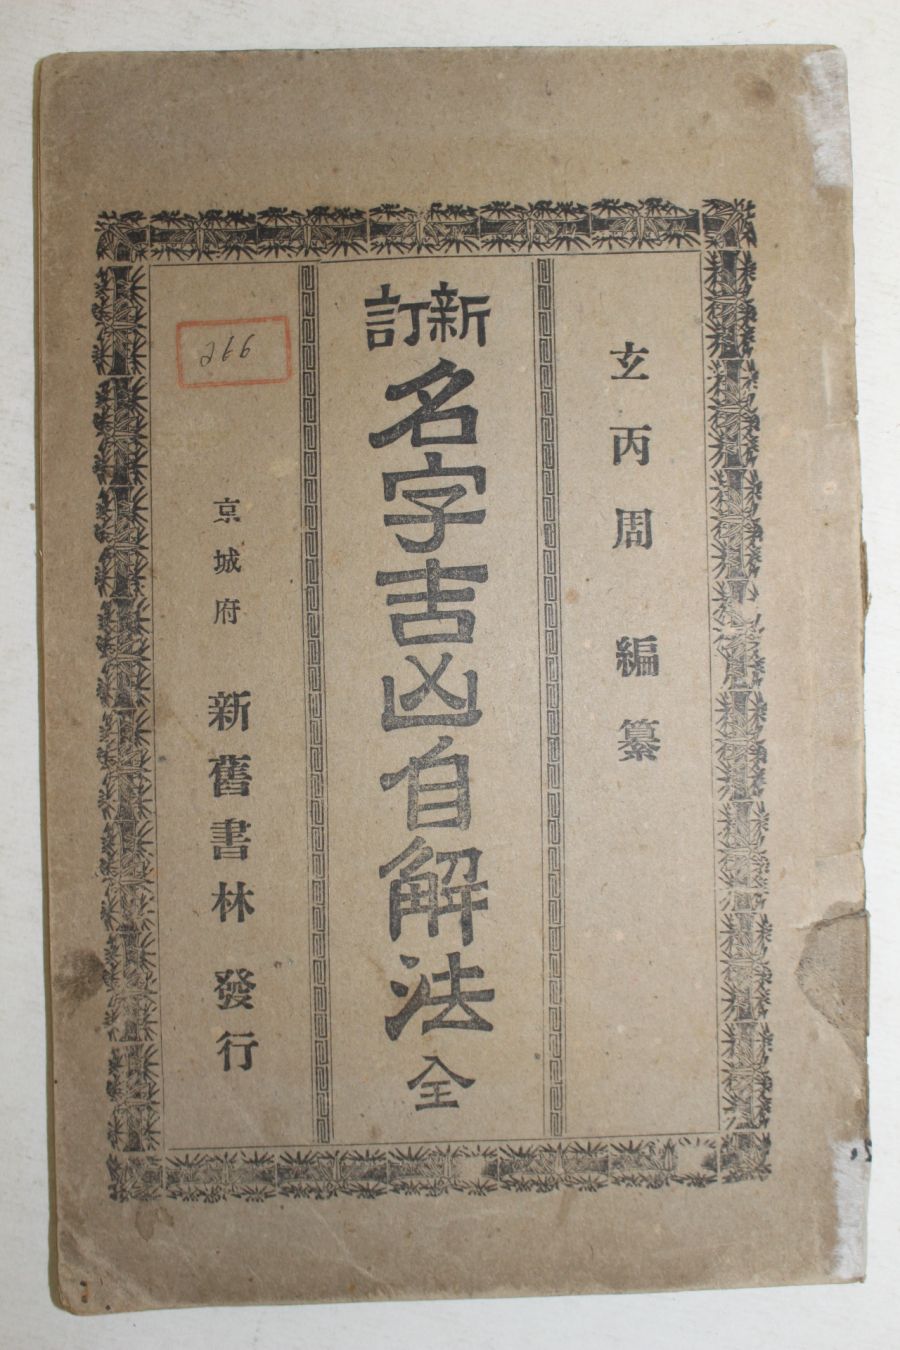 玄丙周編纂
新訂名字吉凶自解法全
京城府 新舊書林 發行